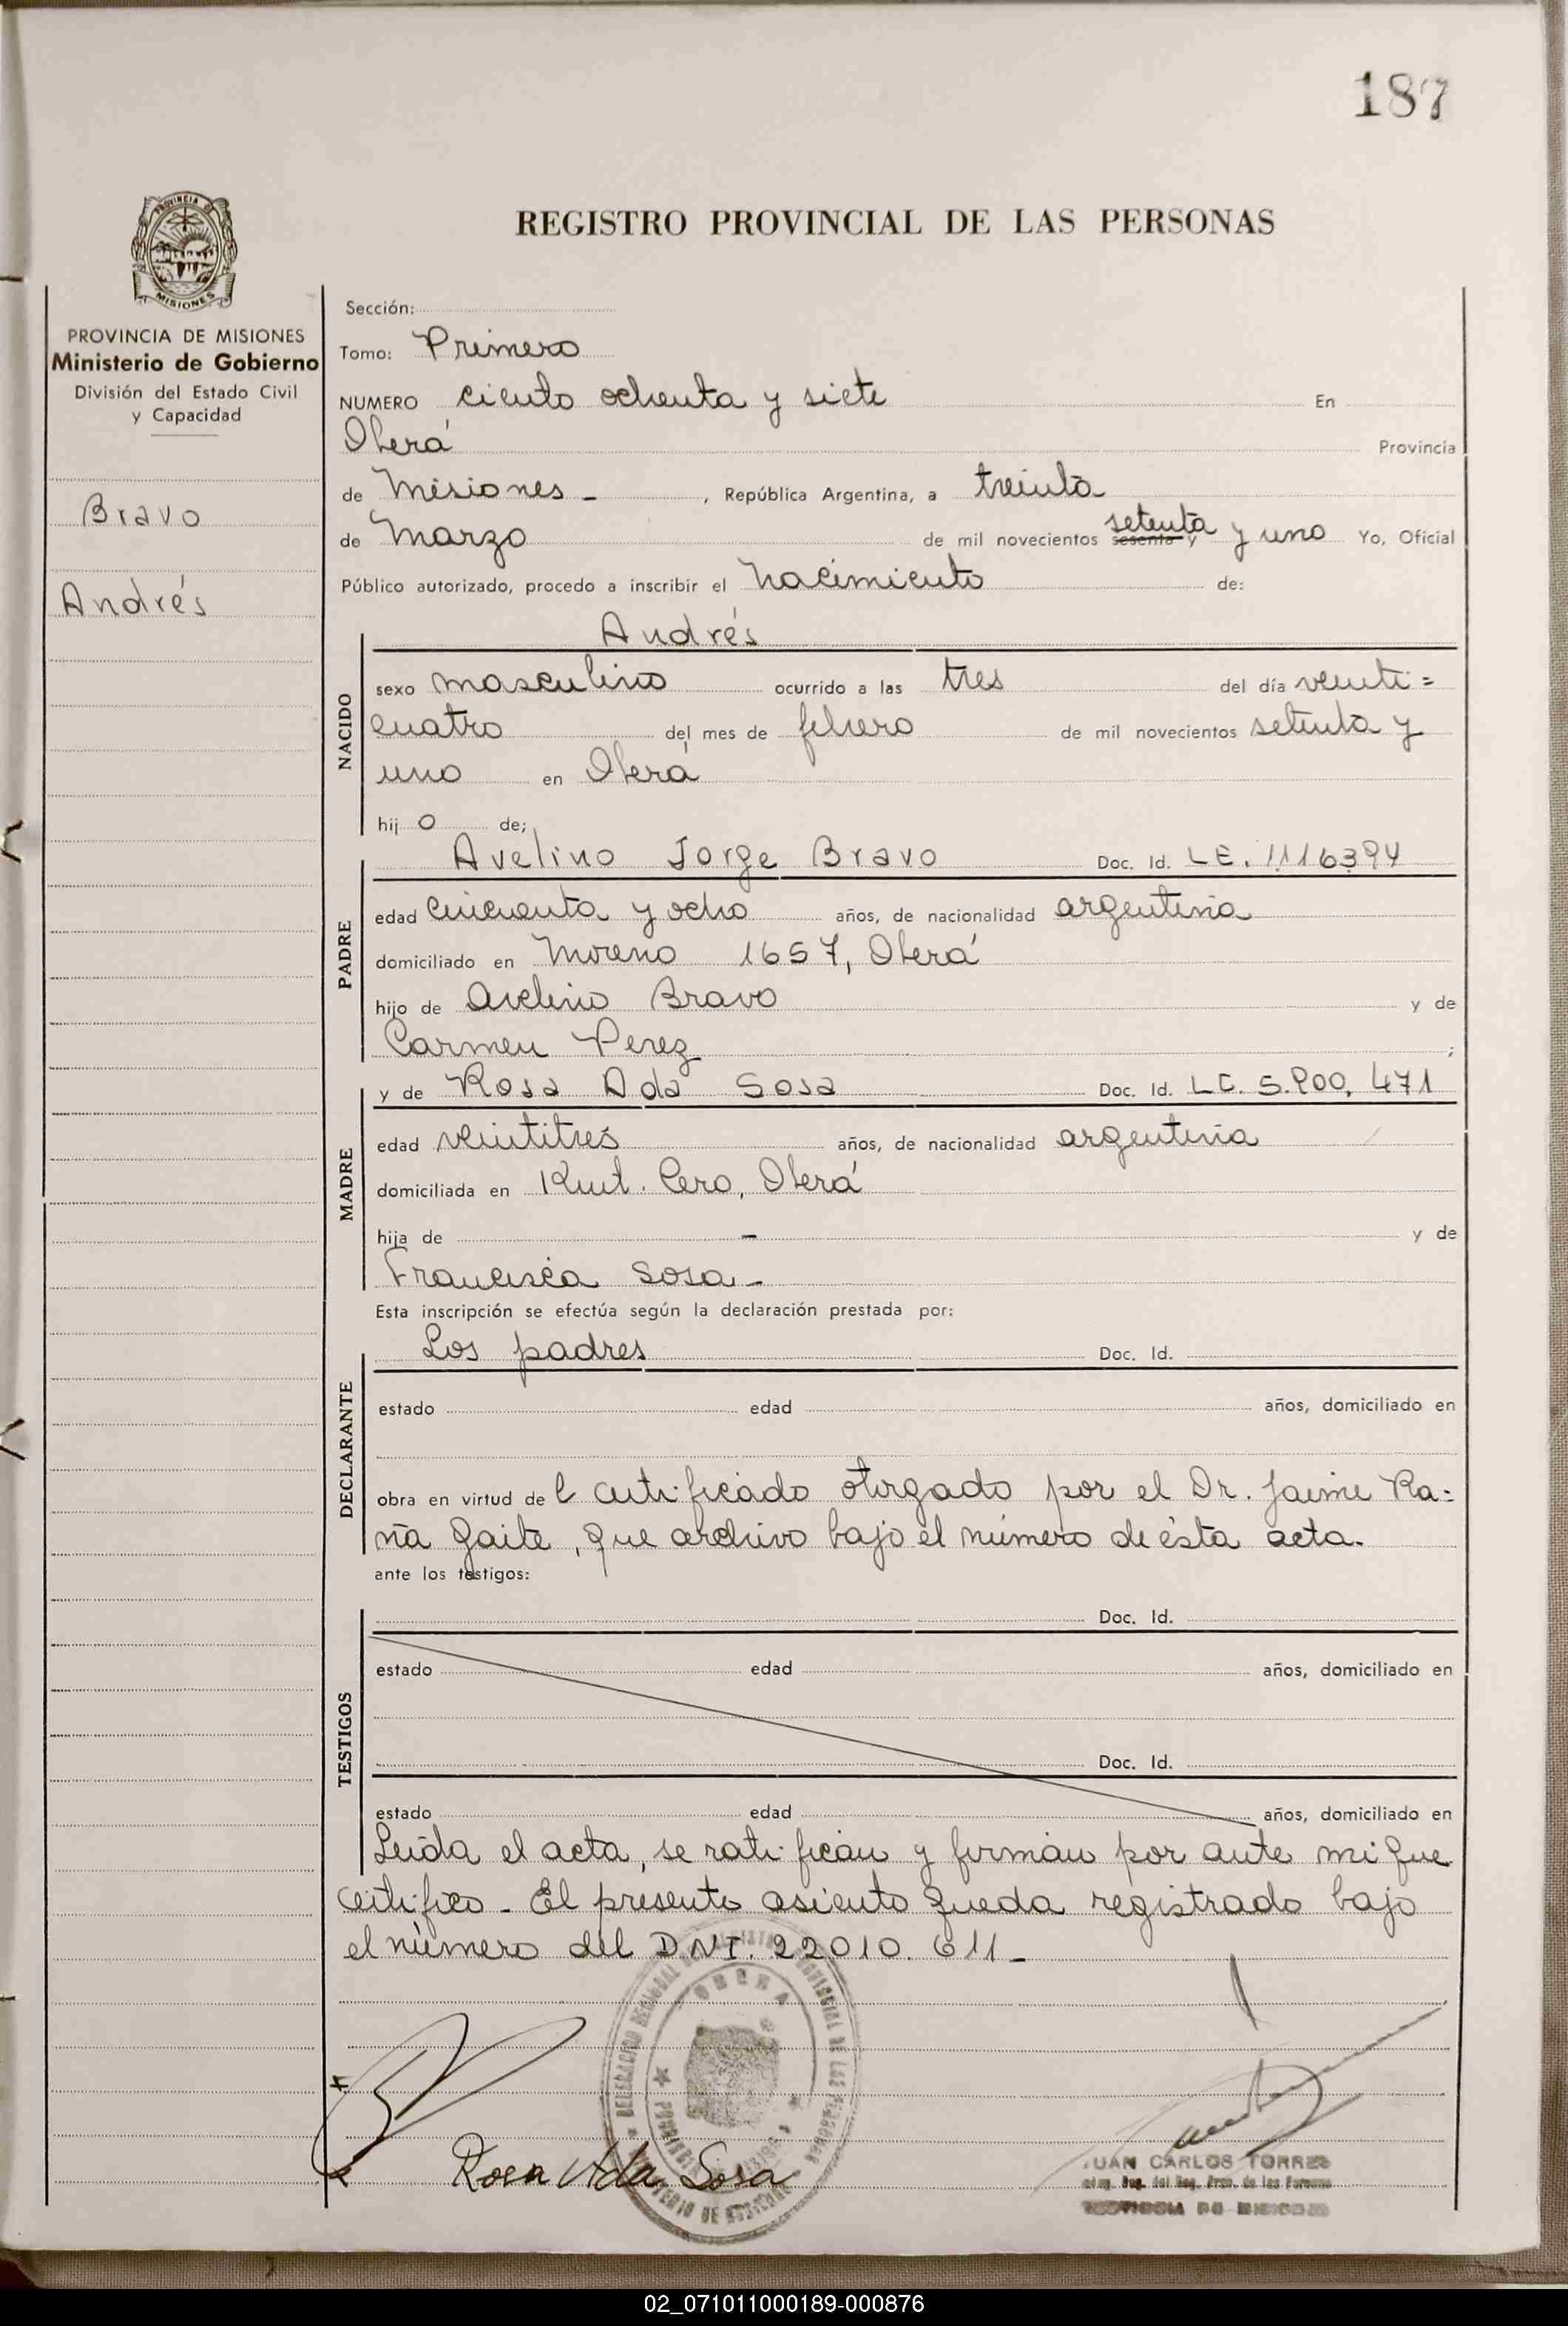 187
REGISTRO PROVINCIAL DE LAS PERSONAS
PROVINCIA DE MISIONES
Ministerio de Gobierno
División del Estado Civil
y Capacidad
Bravo
Andrés
Sección:
Tomo: Primero
NUMERO ciento ochenta y siete En
Oberá Provincia
de Misiones - , República Argentina, a treinta
de Marzo de mil novecientos sesenta y setenta y uno Yo, Oficial
Público autorizado, procedo a inscribir el nacimiento de:
Andrés
NACIDO
sexo masculino ocurrido a las tres del día veinti=
cuatro del mes de febrero de mil novecientos setenta y
uno en Oberá
hij o de;
Avelino Jorge Bravo Doc. Id. LE. 1116394
PADRE
edad cincuenta y ocho años, de nacionalidad argentina
domiciliado en Moreno 1657, Oberá
hijo de Avelino Bravo y de
Carmen Perez ;
y de Rosa Ada Sosa Doc. Id. LC. 5.900.471
MADRE
edad veintitres años, de nacionalidad argentina
domiciliada en Kmt. Cero, Oberá
hija de - y de
Francisca Sosa -
Esta inscripción se efectúa según la declaración prestada por:
Los padres Doc. Id.
DECLARANTE
estado edad años, domiciliado en
obra en virtud de l certificado otorgado por el Dr. Jaime Ra=
ña Gaite, que archivo bajo el número de ésta acta.
ante los testigos:
Doc. Id.
TESTIGOS
estado edad años, domiciliado en
Doc. Id.
estado edad años, domiciliado en
Leida el acta, se ratifican y firman por ante mi que
certifico - El presente asiento queda registrado bajo
el número del DNI. 22010.611 -
Rosa Ada Sosa
JUAN CARLOS TORRES
PROVINCIA DE MISIONES
02_071011000189-000876